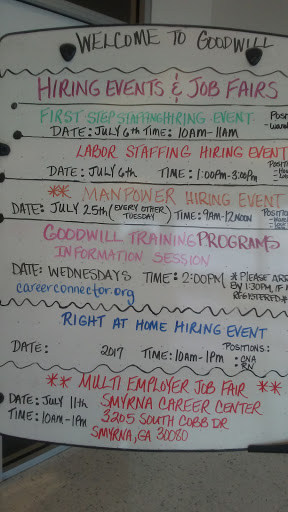 WELCOME TO GOODWILL
HIRING EVENTS & JOB FAIRS
FIRST STEP STAFFING HIRING EVENT
DATE: JULY 6th TIME: 10AM-11AM
LABOR STAFFING HIRING EVENT
DATE: JULY 6th TIME: 1:00PM-3:00PM
** MANPOWER HIRING EVENT
DATE: JULY 25th (EVERY OTHER TUESDAY) TIME: 9AM-12NOON
GOODWILL TRAINING PROGRAMS
INFORMATION SESSION
DATE: WEDNESDAYS TIME: 2:00PM * PLEASE ARR
BY 1:30PM, IF
careerconnector.org REGISTERED*
RIGHT AT HOME HIRING EVENT
DATE: 2017 TIME: 10AM-1PM POSITIONS:
• CNA
• RN
** MULTI EMPLOYER JOB FAIR **
DATE: JULY 11th SMYRNA CAREER CENTER
TIME: 10AM-1PM 3205 SOUTH COBB DR
SMYRNA, GA 30080